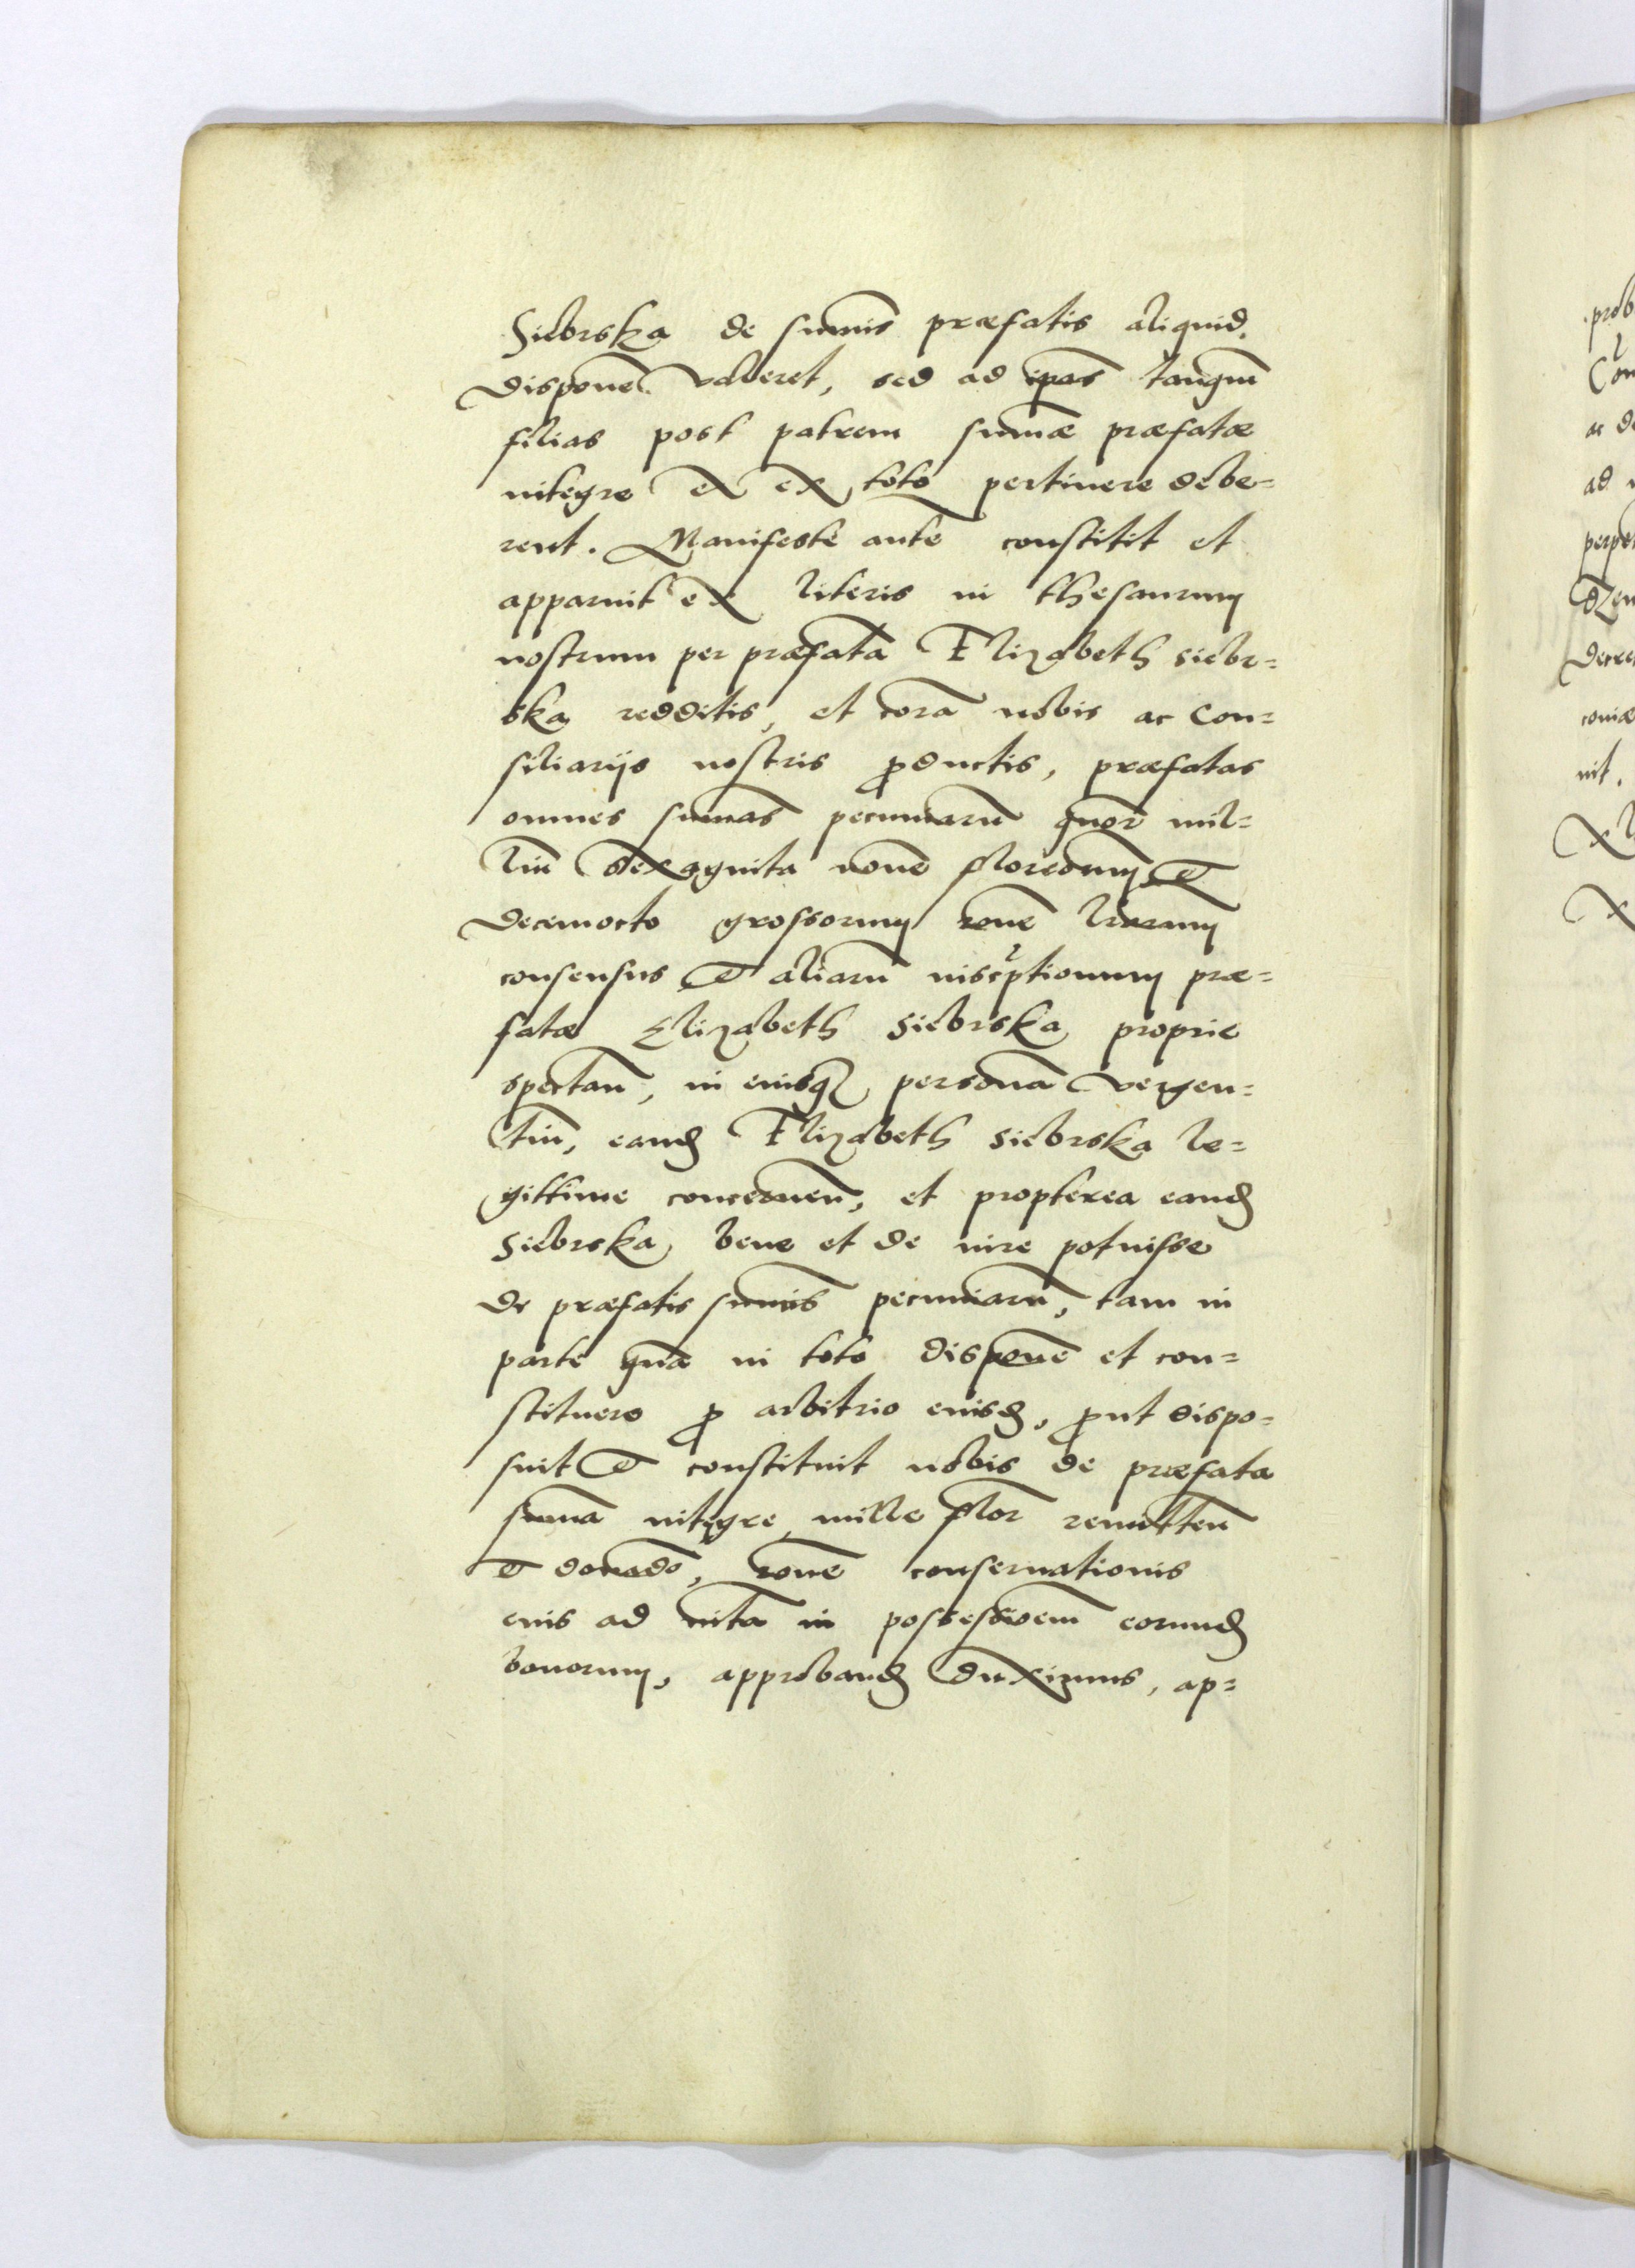 Siebrska de sum̄is præfatis aliquid
disponē valeret, sed ad ip̄as tanqm̄
filias post patrem sum̄æ præfatæ
integre et ex toto pertinere debe=
rent. Manifeste autē constitit et
apparuit ex literis in thesaurum
nostrum per præfatā Elizabeth Siebr=
ska redditis, et corā nobis ac Con=
siliarijs nostris ꝓductis, præfatas
omnes sum̄as pecuniarū quor̄ mil=
liū sexaginta nouē florenorum et
decemocto grossorum rōne lr̄arum
consensus et aliarū inscriptionum præ=
fatæ Elizabeth Siebrska proprie
spectan̄, in eiusqꝫ personā vergen=
tiū, eandꝫ Elizabeth Siebrska le=
gittime concernen̄, et propterea eandꝫ
Siebrska bene et de iure potuisse
de præfatis sum̄is pecuniarū, tam in
parte quā in toto disponē et con=
stituere ꝓ arbitrio eiusdꝫ, ꝓut dispo=
suit et constituit nobis de præfata
sum̄a integre mille flor̄ remitten̄
et donādo, rōne conseruationis
eius ad vitā in possessioēm eorundꝫ
bonorum, approbandꝫ duximus, ap=
prob
Con
ac de
ad
decre
coniæ
nit.